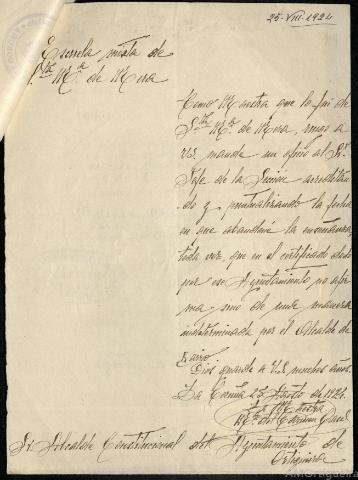 25-VIII-1924
Escuela mixta de
S.ta M.a de Mera
Como Maestra que lo fui de
S.ta M.a de Mera, ruego a
V.S. mande un oficio al Sr.
Jefe de la Sección acreditán
do y puntualizando la fecha
en que abandoné la enseñanza
toda vez, que en el certificado dado
por ese Ayuntamiento no afir
ma sino de una manera
indeterminada por el Alcalde de
barrio.
Dios guarde a V.S. muchos años.
La Coruña 25 Agosto de 1924.
La Maestra
M.a del Carmen
Sr. Alcalde Constitucional del Ayuntamiento de
Ortigueira